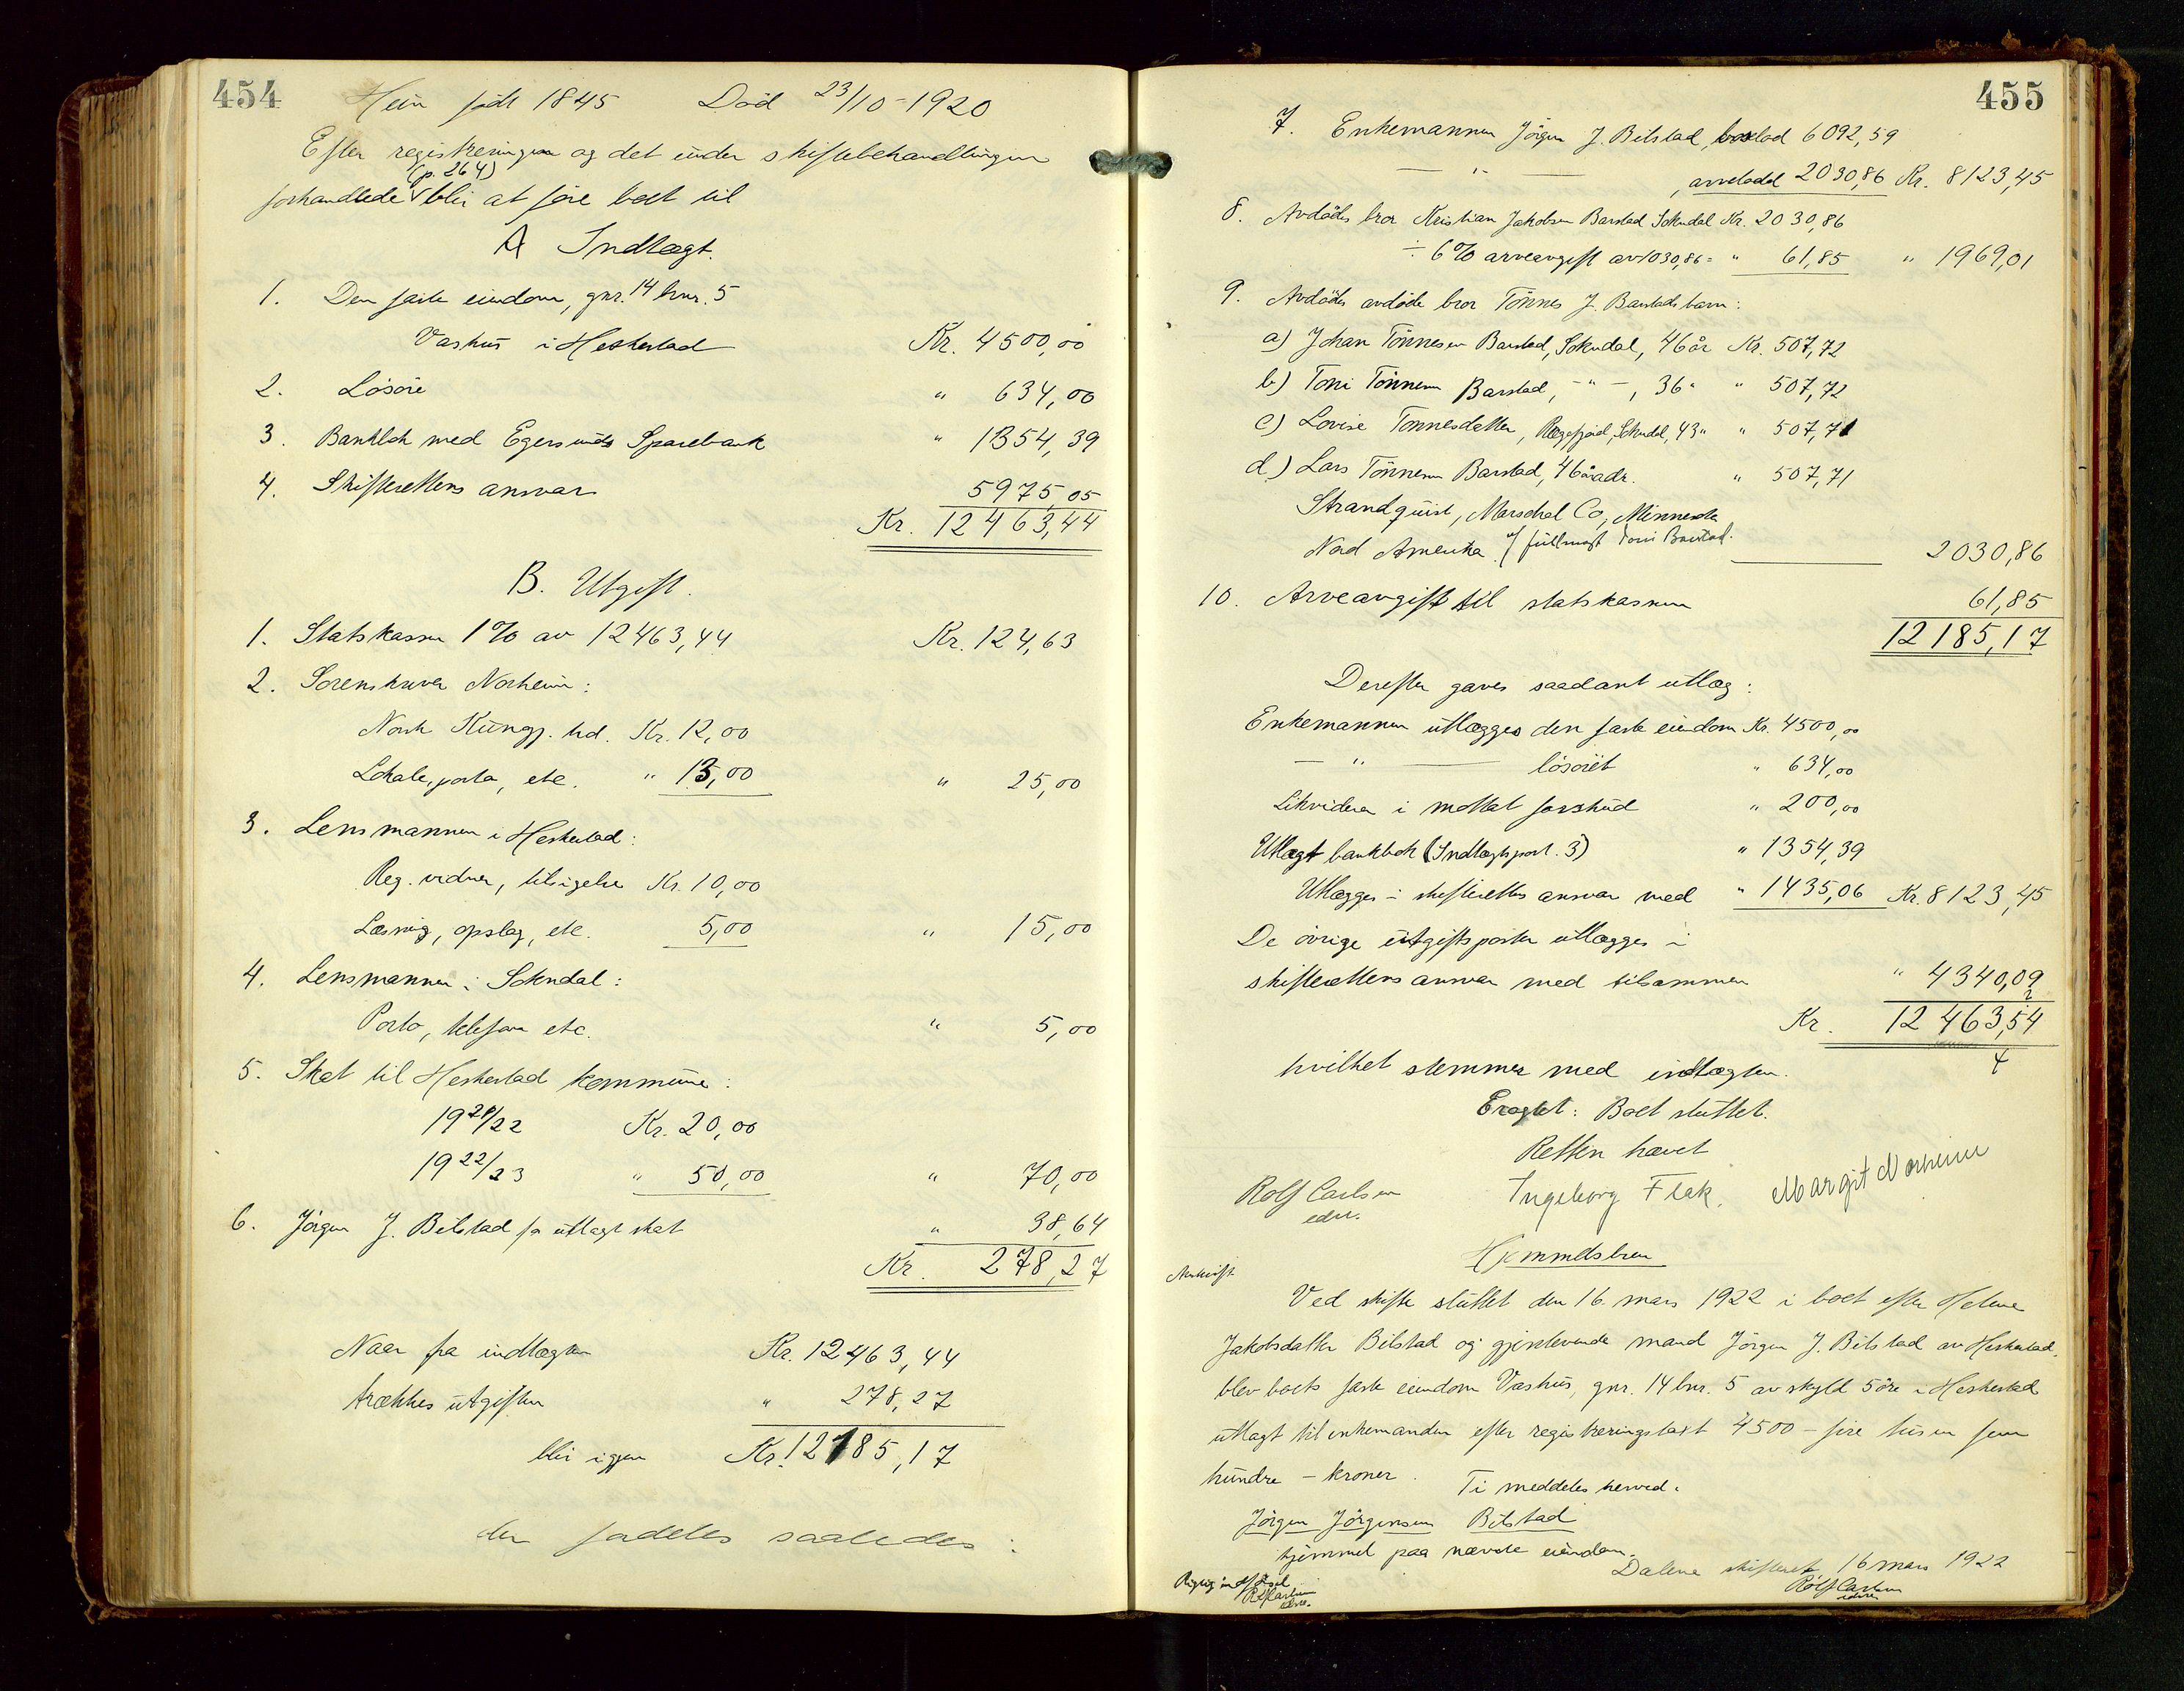 454
Hun født 1845 Død 23/10-1920
Efter registreringen og det under skiftebehandlingen
(p. 264)
forhandlede blir at føre boet til
A Indtægt.
1. Den faste eiendom, gnr. 14 bnr. 5
Vashus i Heskestad Kr. 4500,00
2. Løsøre " 634,00
3. Bankbok med Egersunds Sparebank " 1354,39
4. Skifterettens ansvar 5975,05
Kr. 12463,44
B. Utgift.
1. Statskassen 1% av 12463,44 Kr. 124,63
2. Sorenskriver Norheim:
Norsk Kungj. tid. Kr. 12,00
Lokale, porto, etc. " 13,00 " 25,00
3. Lensmannen i Heskestad:
Reg. vidner, tilsigelse Kr. 10,00
Læsning, opslag, etc. 5,00 " 15,00
4. Lensmannen i Sokndal:
Porto, telefon etc. " 5,00
5. Skat til Heskestad kommune:
1921/22 Kr. 20,00
1922/23 " 50,00 " 70,00
6. Jörgen J. Bilstad for utlagt skat " 38,64
Kr. 278,27
Naar fra indtægten Kr. 12463,44
trækkes utgiften " 278,27
blir igjen Kr. 12185,17
der fordeles saaledes:
455
7. Enkemannen Jörgen J. Bilstad, boslod 6092,59
— " — , arvelodd 2030,86 Kr. 8123,45
8. Avdødes bror Kristian Jakobsen Barstad Sokndal Kr. 2030,86
÷ 6% arveavgift av 1030,86 = " 61,85 " 1969,01
9. Avdødes avdøde bror Tönnes J. Barstads barn:
a) Johan Tönnesen Barstad, Sokndal, 46 år Kr. 507,72
b) Toni Tönnesen Barstad, - " - , 36 " " 507,72
c) Lovise Tönnesdatter, Rægefjord, Sokndal, 43 " " 507,71
d) Lars Tönnesen Barstad, 46 år adr. " 507,71
Strandquist, Marschal Co, Minnesota
Nord Amerika. e/ fullmagt Toni Barstad. 2030,86
10. Arveavgift til statskassen 61,85
12185,17
Derefter gaves saadant utlæg:
Enkemannen utlægges den faste eiendom Kr. 4500,00
— " — løsøret " 634,00
Likviderer i mottat forskud " 200,00
Utlagt bankbok (Indtægtspost. 3) " 1354,39
Utlægges i skifterettens ansvar med " 1435,06 Kr. 8123,45
De øvrige utgiftsposter utlægges i
skifterettens ansvar med tilsammen " 4340,09
2
Kr. 12463,54
4
hvilket stemmer med indtægten.
Eragtet: Boet sluttet.
Retten hævet
Rolf Carlsen Ingeborg Flak. Margit Norheim
edsv.
Hjemmelsbrev
Avskrift
Ved skifte sluttet den 16. mars 1922 i boet efter Helene
Jakobsdatter Bilstad og gjenlevende mand Jörgen J. Bilstad av Heskestad,
blev boets faste eiendom Vashus, gnr. 14 bnr. 5 av skyld 5 øre i Heskestad
utlagt til enkemanden efter registreringstakst 4500 - fire tusen fem
hundre - kroner. Ti meddeles herved
Jörgen Jörgensen Bilstad
hjemmel paa nævnte eiendom.
Dalene skifteret, 16 mars 1922
Rolf Carlsen
edsv.
Rigtig indført
Rolf Carlsen
edsv.